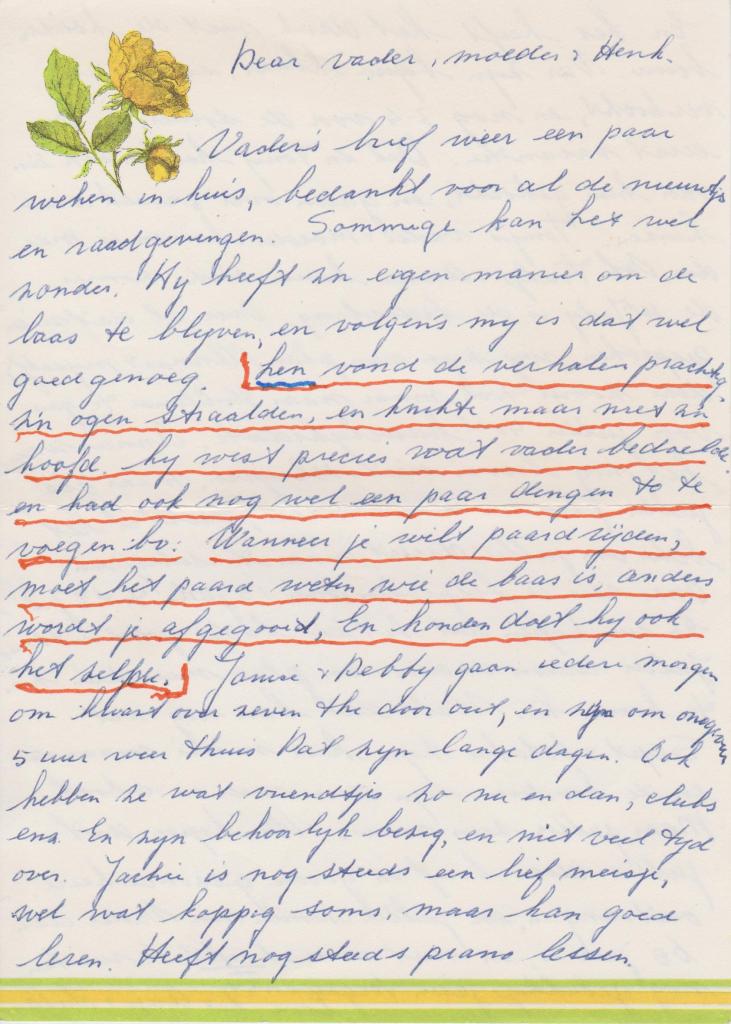 Dear vader, moeder & Henk.
Vader's brief weer een paar
weken in huis, bedankt voor al de nieuwtjs
en raadgevingen. Sommige kan het wel
zonder. Hy heeft z'n eigen manier om de
baas te blyven, en volgens my is dat wel
goed genoeg. hen vond de verhalen prachtig,
z'n ogen straalden, en knikte maar met z'n
hoofd. hy wist precies wat vader bedoelde.
en had ook nog wel een paar dingen to te
voegen bv: Wanneer je wilt paardrijden,
moet het paard weten wie de baas is, anders
wordt je afgegooid, En honden doet hy ook
het selfde. Janise & Debby gaan iedere morgen
om kwart over zeven the door out, en zyn om ongeveer
5 uur weer thuis Dat zyn lange dagen. Ook
hebben ze wat vriendtjis zo nu en dan, clubs
enz. En zyn behoorlyk bezig, en niet veel tyd
over. Jackie is nog steeds een lief meisje,
wel wat koppig soms, maar kan goed
leren. Heeft nog steeds piano lessen.